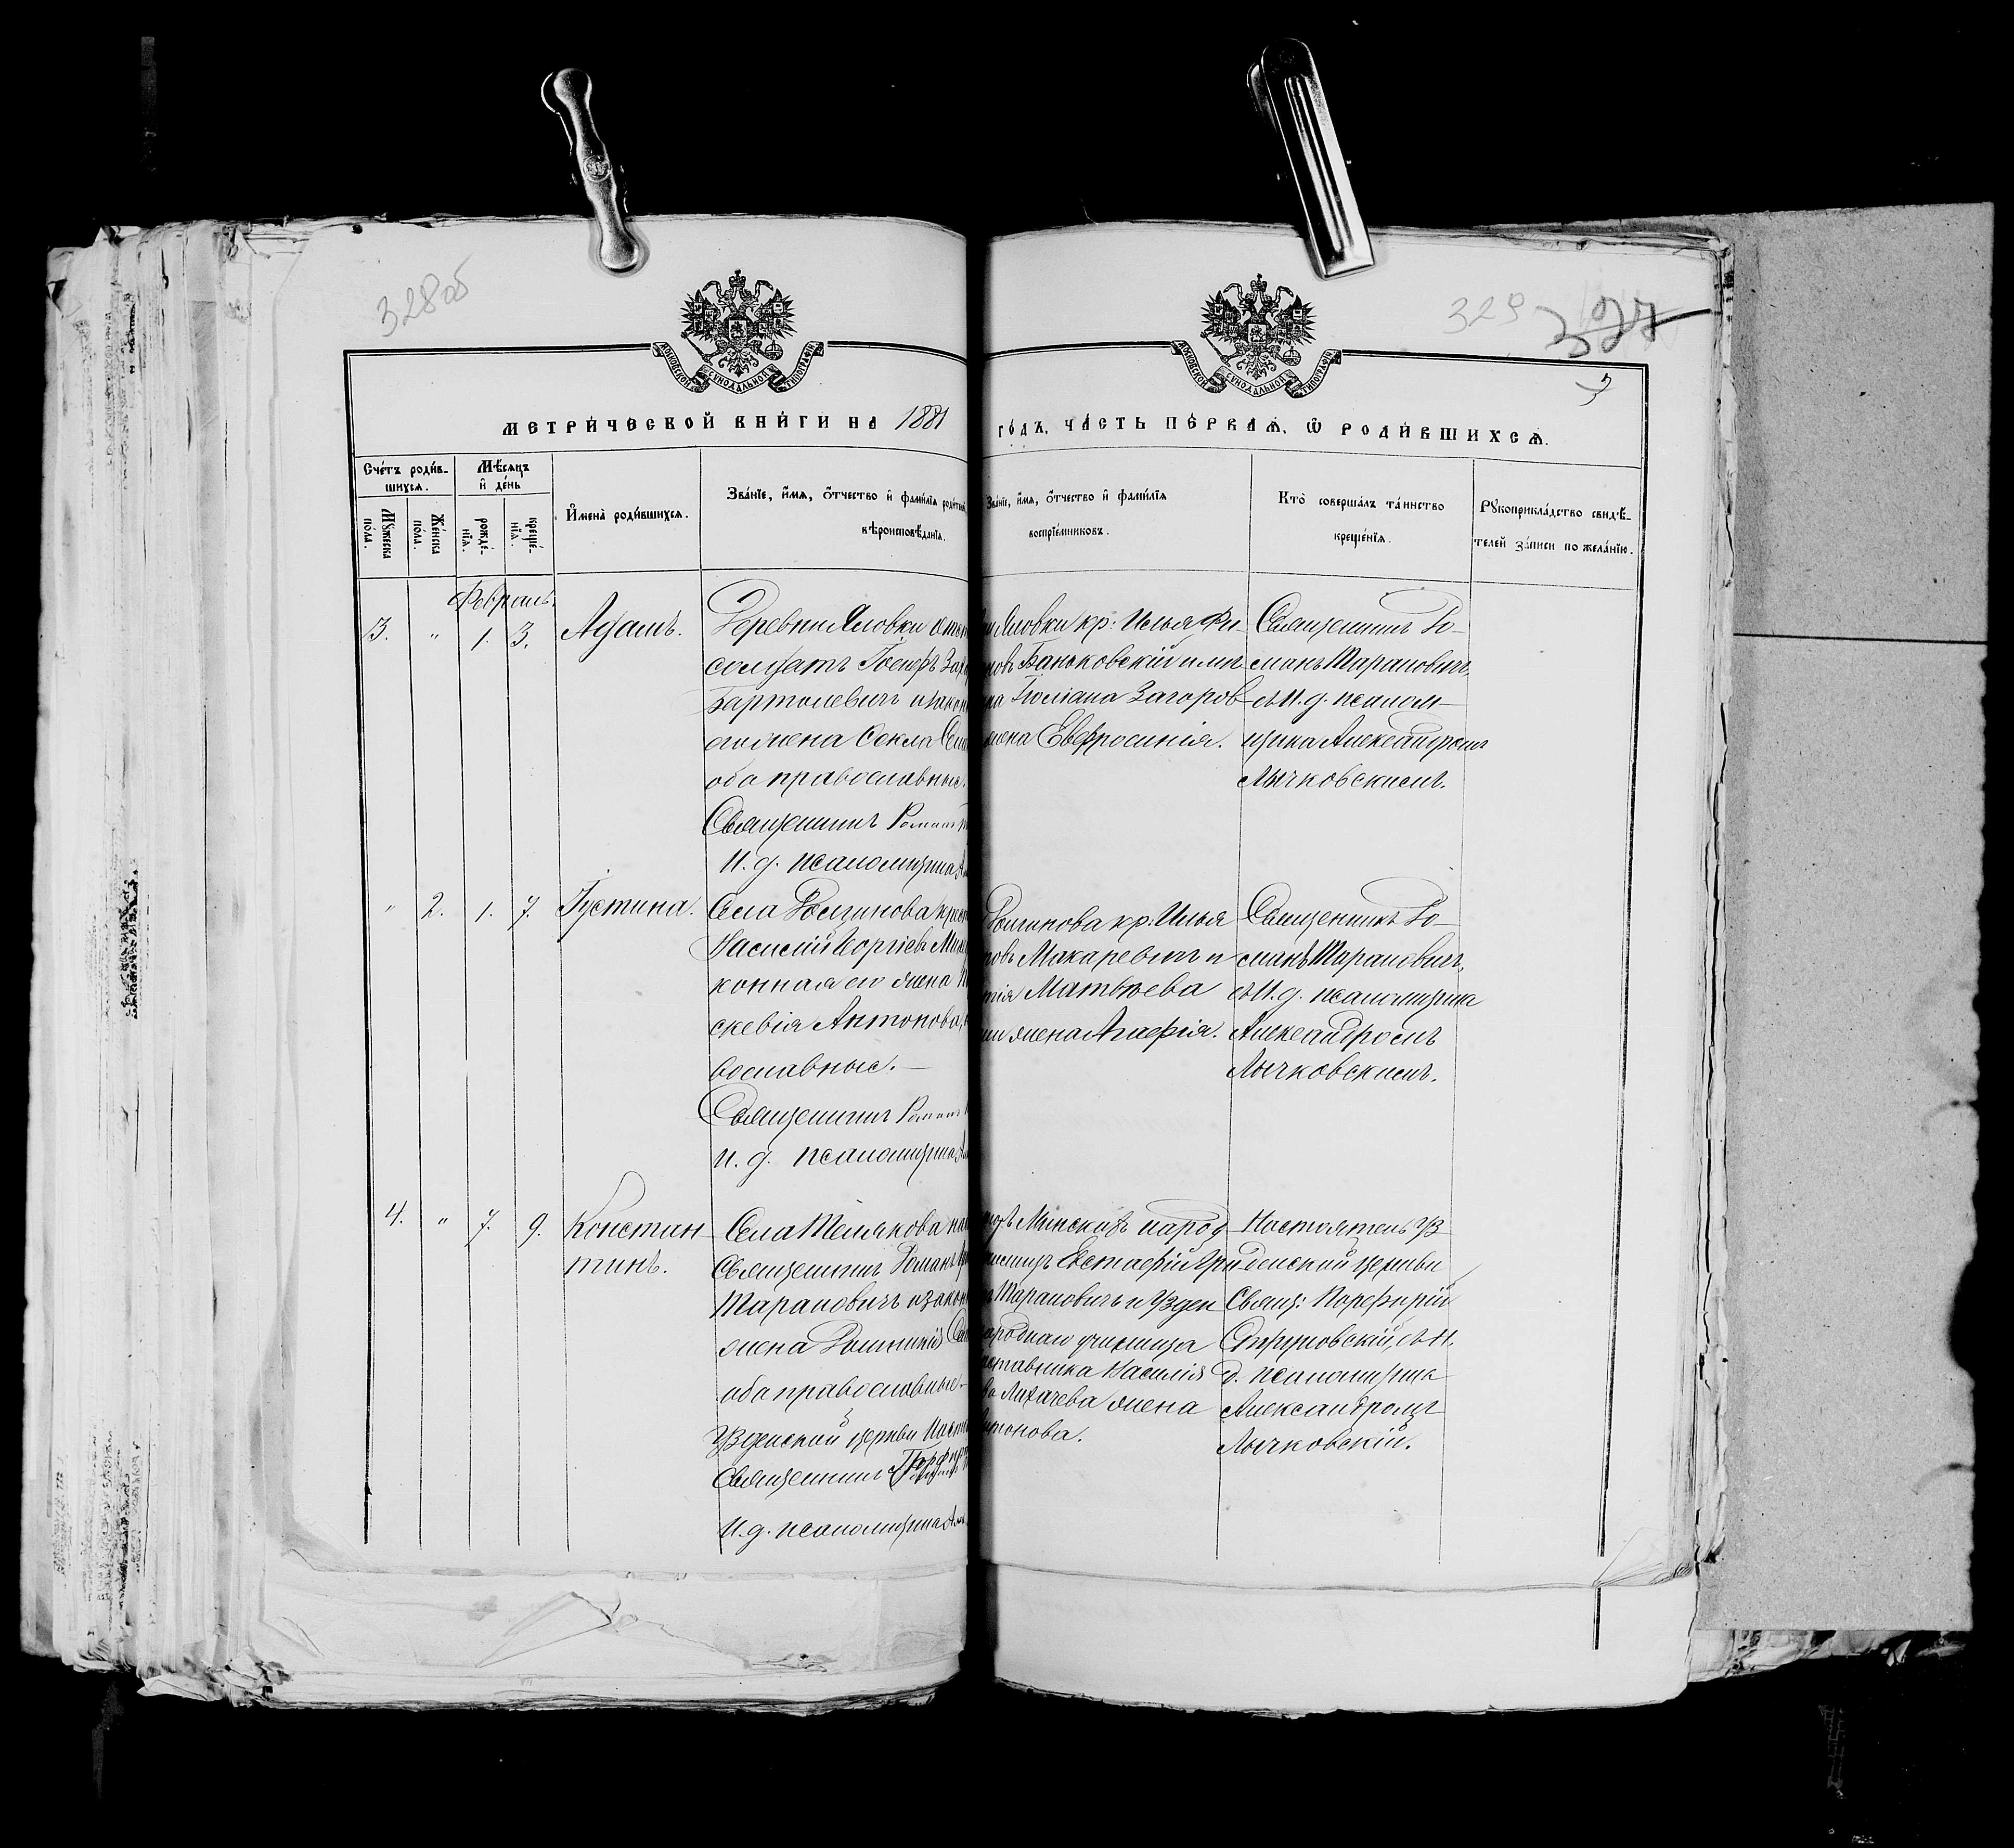 328 об
329
327
3
МОСКОВСКОЙ СУНОДАЛЬНОЙ ТИПОГРАФІИ
МОСКОВСКОЙ СУНОДАЛЬНОЙ ТИПОГРАФІИ
МЕТРИ́ЧЕСКОЙ КНИ́ГИ НА 1881
ГО́ДЪ, ЧА́СТЬ ПЕ́РВАѦ, Ѡ РОДИ́ВШИХСѦ.
Сче́тъ роди́в-
шихсѧ.
Мꙋжеска по́ла.
Же́нска по́ла.
Мѣ́сѧцъ
и҆ де́нь
рожде́-
нїѧ.
креще́-
нїѧ.
И҆мена̀ роди́вшихсѧ.
Зва́нїе, и҆́мѧ, ѻ҆́тчество и҆ фами́лїѧ роди́тел
вѣроисповѣ́данїѧ.
Зва́нїе, и҆́мѧ, ѻ҆́тчество и҆ фами́лїѧ
воспрїе́мниковъ.
Кто̀ соверша́лъ та́инство
креще́нїѧ.
Рꙋкоприкла́дство свидѣ́-
телей за́писи по жела́нїю.
Февраль.
3. " 1. 3. Адамъ.
Деревни Яловки
солдатъ Іосифъ Зах
Бартолевичъ и закон
его жена Фекла Сем
оба православные.
Священникъ Романъ
И. д. псаломщика
Яловки кр: Илья Фи-
новъ Баньковскій и
на Юліана Загоров
жена Евфросинія.
Священникъ Ро-
манъ Тарановичъ,
съ И. д. псалом-
щика Александромъ
Лычковскимъ.
" 2. 1. 7. Іустина.
Села Долгинова крест
Василій Георгіевъ
конная его жена
скевія Антонова,
вославные. —
Священникъ Романъ
И. д. псаломщика
Долгинова кр: Илья
новъ Макаревичъ и
Матвѣева
жена Агафія.
Священникъ Ро-
манъ Тарановичъ,
съ И. д. псаломщика
Александромъ
Лычковскимъ.
4. " 7. 9. Констан-
тинъ.
Села Телякова
Священникъ Романъ
Тарановичъ и закон
жена
оба православные.
Узденской церкви Наст
Священникъ Порфирій
И. д. псаломщика
Минскихъ народ
Евстафій Гри
Тарановичъ и Узден
народнаго училища
наставника Василія
Лихачева жена
Антонова.
Настоятель Уз
денской церкви
Свящ: Порфирій
съ И.
д. псаломщика
Александромъ
Лычковскій.